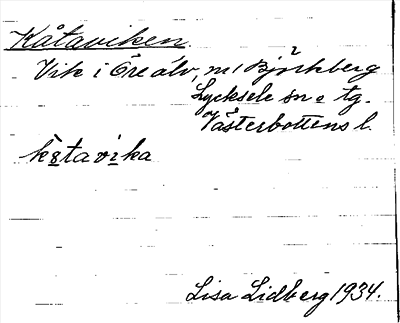 Kåtaviken
Vik i Öre älv, m/ Björkberg
Lycksele sn o tg.
Västerbottens l.
kå̀tavika
Lisa Lidberg 1934.